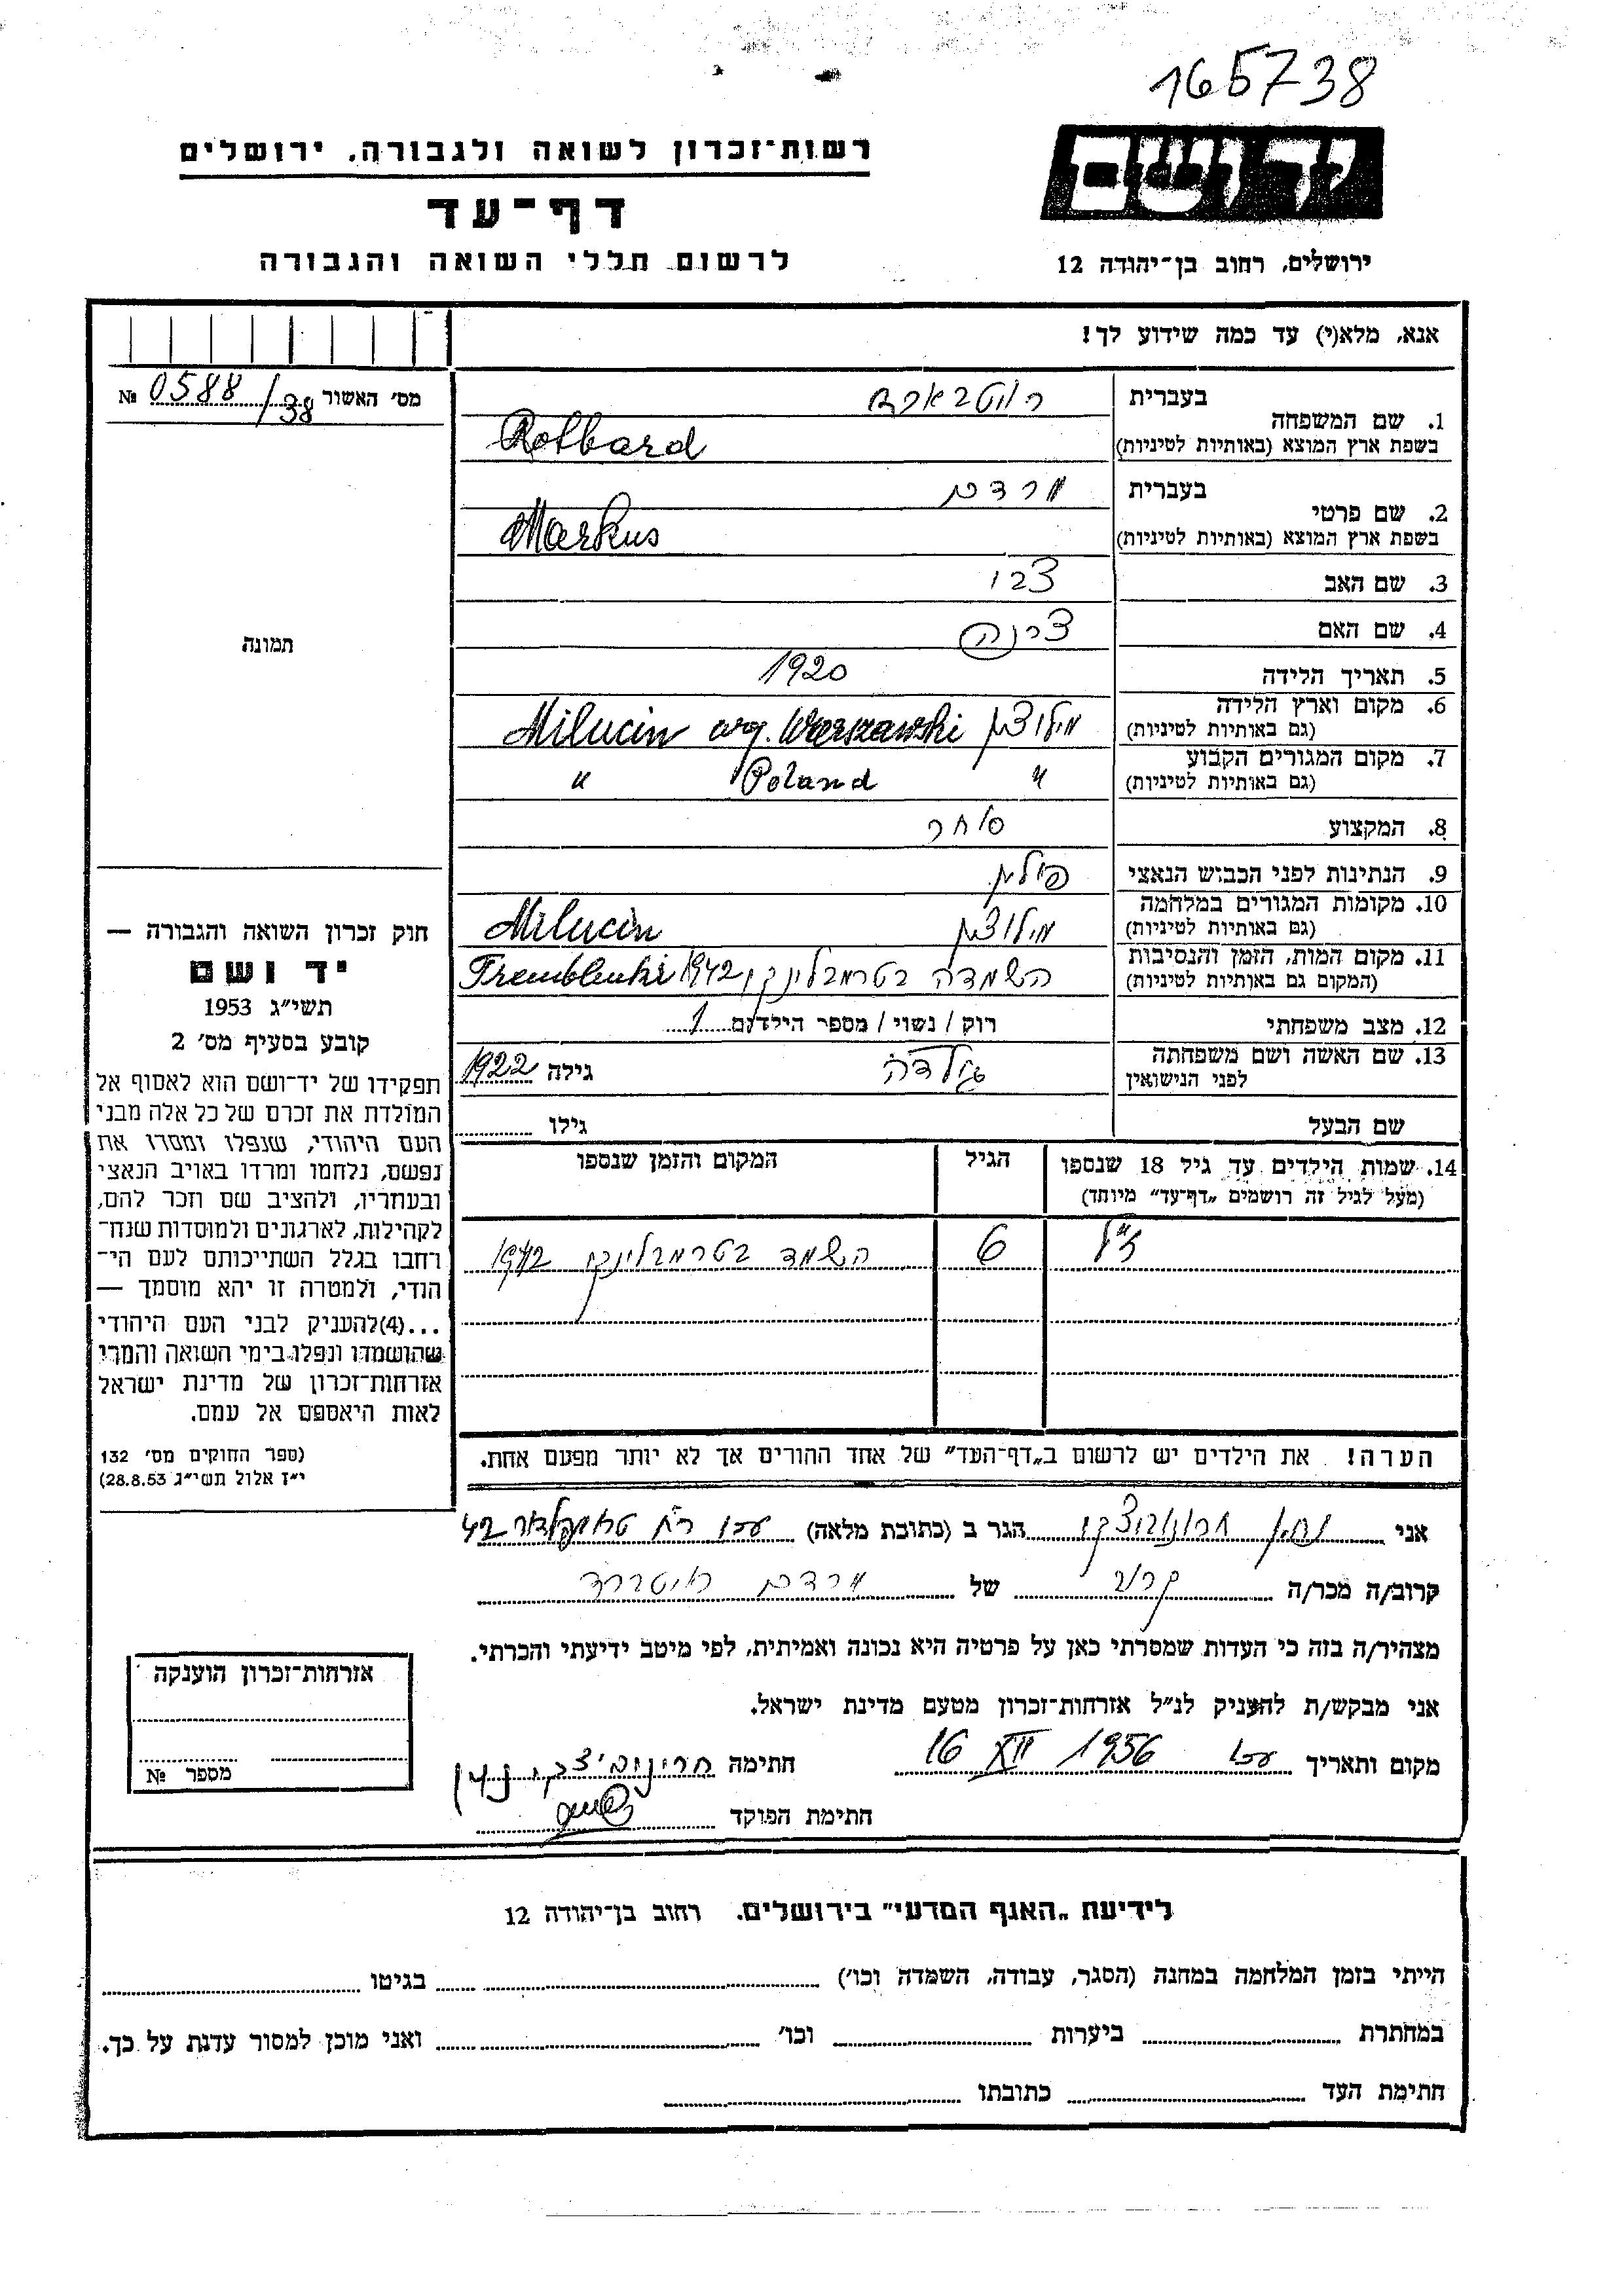 165738
ידושם
ירושלים, רחוב בן־יהודה 12
רשות־זכרון לשואה ולגבורה, ירושלים
דף־עד
לרשום חללי השואה והגבורה
אנא, מלא(י) עד כמה שידוע לך!
מס׳ האשור 0588/38 №
תמונה
1. שם המשפחה
בעברית רוטבארד
בשפת ארץ המוצא (באותיות לטיניות) Rotbard
2. שם פרטי
בעברית מרדכי
בשפת ארץ המוצא (באותיות לטיניות) Markus
3. שם האב צבי
4. שם האם
5. תאריך הלידה 1920
6. מקום וארץ הלידה
(גם באותיות לטיניות) Milucin Warszawski
7. מקום המגורים הקבוע
(גם באותיות לטיניות) " Poland "
8. המקצוע סוחר
9. הנתינות לפני הכבוש הנאצי פולין
10. מקומות המגורים במלחמה
(גם באותיות לטיניות) Milucin
11. מקום המות, הזמן והנסיבות
(המקום גם באותיות לטיניות) השמדה בטרמבלינקי 1942 Tremblinki
12. מצב משפחתי רוק / נשוי / מספר הילדים 1
13. שם האשה ושם משפחתה
לפני הנישואין גולדה גילה 1922
שם הבעל גילו
14. שמות הילדים עד גיל 18 שנספו
(מעל לגיל זה רושמים „דף־עד״ מיוחד)
הגיל
המקום והזמן שנספו
6 השמד בטרמבלינקי 1942
הערה! את הילדים יש לרשום ב„דף־העד״ של אחד ההורים אך לא יותר מפעם אחת.
חוק זכרון השואה והגבורה —
יד ושם
תשי״ג 1953
קובע בסעיף מס׳ 2
תפקידו של יד־ושם הוא לאסוף אל
המולדת את זכרם של כל אלה מבני
העם היהודי, שנפלו ומסרו את
נפשם, נלחמו ומרדו באויב הנאצי
ובעוזריו, ולהציב שם וזכר להם,
לקהילות, לארגונים ולמוסדות שנח־
רבו בגלל השתייכותם לעם הי־
הודי, ולמטרה זו יהא מוסמך —
...(4)להעניק לבני העם היהודי
שהושמדו ונפלו בימי השואה והמרי
אזרחות־זכרון של מדינת ישראל
לאות היאספם אל עמם.
(ספר החוקים מס׳ 132
י״ז אלול תשי״ג 28.8.53)
אני הגר ב (כתובת מלאה) עכו רח 42
קרוב/ה מכר/ה קרוב של מרדכי רוטברד
מצהיר/ה בזה כי העדות שמסרתי כאן על פרטיה היא נכונה ואמיתית, לפי מיטב ידיעתי והכרתי.
אני מבקש/ת להעניק לנ״ל אזרחות־זכרון מטעם מדינת ישראל.
מקום ותאריך עכו 16 XII 1956 חתימה
חתימת הפוקד
אזרחות־זכרון הוענקה
מספר №
לידיעת „האגף המדעי״ בירושלים, רחוב בן־יהודה 12
הייתי בזמן המלחמה במחנה (הסגר, עבודה, השמדה וכו׳) בגיטו
במחתרת ביערות וכו׳ ואני מוכן למסור עדות על כך.
חתימת העד כתובתו